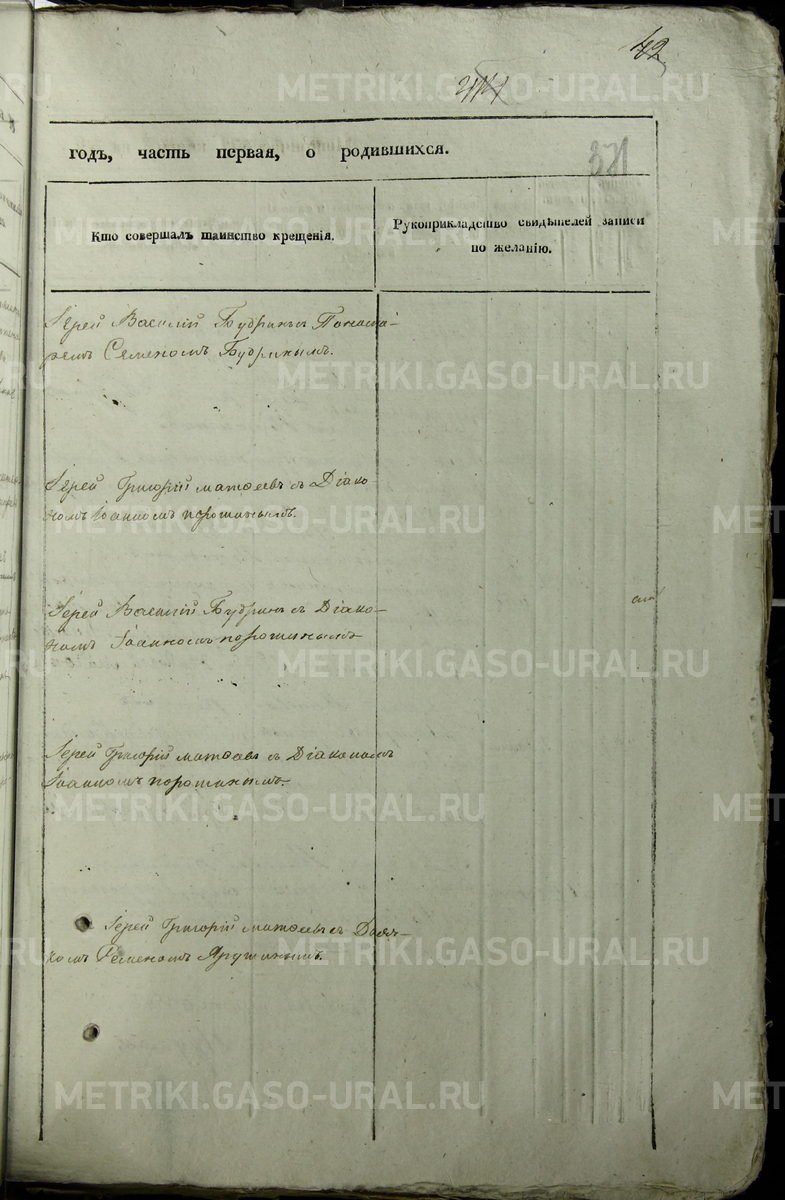 42
371
годъ, часть первая, о родившихся.
Кто совершалъ таинство крещенія.
Рукоприкладство свидѣтелей записи
по желанію.
Іерей Василій Будринъ с Понома-
ремъ Семеномъ Будринымъ.
Іерей Григорій Матѳеевъ съ Діако
номъ Іоанномъ Порошинымъ.
Іерей Василій Будринъ съ Діако-
номъ Іоанномъ Порошинымъ
Іерей Григорій Матѳеевъ съ Діакономъ
Іоанномъ Порошинымъ.
Іерей Григорій Матѳеевъ съ Дьяч-
комъ Семеномъ Ярушинымъ.
METRIKI.GASO-URAL.RU